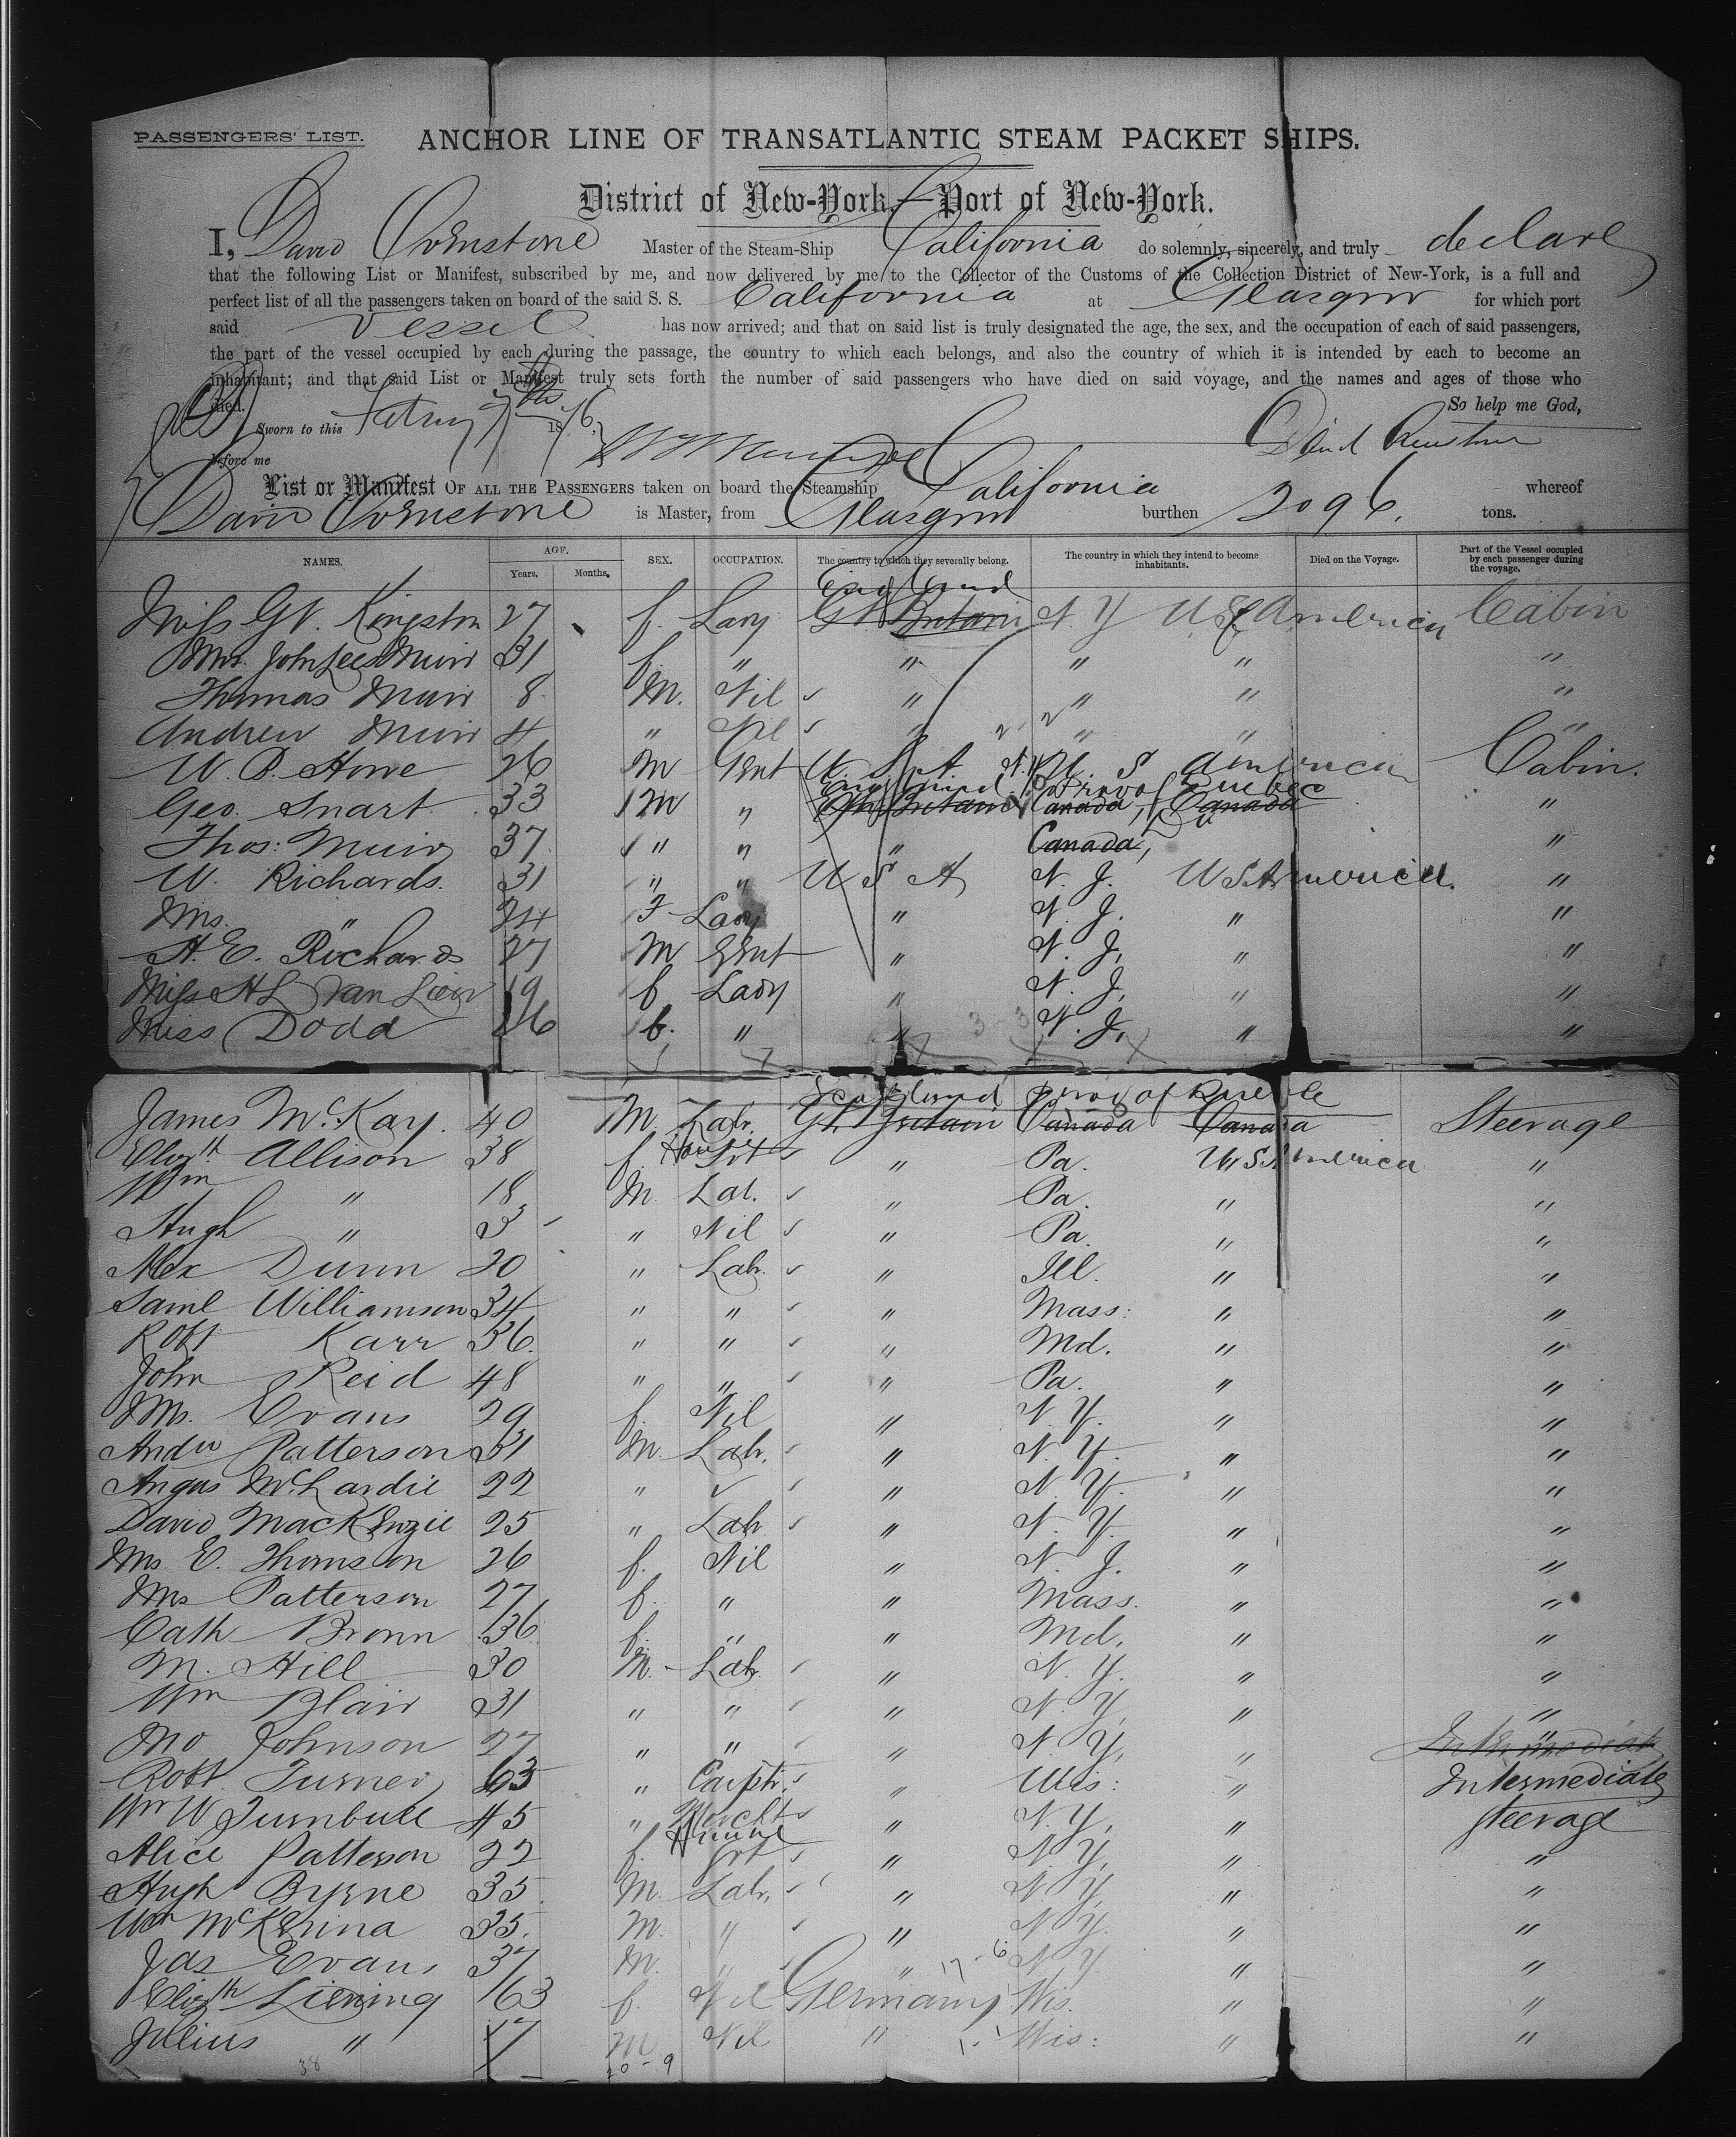 PASSENGERS' LIST. ANCHOR LINE OF TRANSATLANTIC STEAM PACKET SHIPS.
District of New-York.—Port of New-York.
I, David Ovenstone Master of the Steam-Ship California do solemnly, sincerely, and truly declare
that the following List or Manifest, subscribed by me, and now delivered by me to the Collector of the Customs of the Collection District of New-York, is a full and
perfect list of all the passengers taken on board of the said S. S. California at Glasgow for which port
said Vessel has now arrived; and that on said list is truly designated the age, the sex, and the occupation of each of said passengers,
the part of the vessel occupied by each during the passage, the country to which each belongs, and also the country of which it is intended by each to become an
inhabitant; and that said List or Manifest truly sets forth the number of said passengers who have died on said voyage, and the names and ages of those who
died. So help me God,
Sworn to this 1876
before me
List or Manifest OF ALL THE PASSENGERS taken on board the Steamship California whereof
David Ovenstone is Master, from Glasgow burthen 2096. tons.
NAMES. AGE. SEX. OCCUPATION. The country to which they severally belong. The country in which they intend to become inhabitants. Died on the Voyage. Part of the Vessel occupied by each passenger during the voyage.
Years. Months.
England
Miss Kingston 27 f. Lady Gt Britain N. Y U S America Cabin
Mrs. John Lees Muir 31 f. " " " " "
Thomas Muir 8 M. Nil " " " "
Andrew Muir 4 " Nil " " " "
W. P. Howe 26 M Gent U. S. A N.Y U. S America Cabin.
England Prov of Quebec
Geo. Smart 33 M " Gt Britain Canada, Canada "
Thos: Muir 37 " " " Canada, "
W. Richards. 31 " " U S A N. J. U S America. "
Mrs. " 24 F Lady " N. J. " "
A. E. Richards 27 M Gent " N. J. " "
Miss A L Van Liew 19 f Lady " N. J. " "
Miss Dodd 26 f. " " N. J. " "
Scotland Prov of Quebec
James McKay. 40 M. Labr. Gt. Britain Canada Canada Steerage
Elizth Allison 38 f. " Pa. U S America "
Wm " 18 M. Lab. " Pa. " "
Hugh " 3 " Nil " Pa. " "
Alex Dunn 20 " Labr. " Ill. " "
Saml Williamson 34 " " " Mass: " "
Robt Karr 36. " " " Md. " "
John Reid 48 " " " Pa. " "
Mrs. Evans 29 f. Nil " N. Y. " "
Andw Patterson 31 M. Labr. " N. Y. " "
Angus McLardie 22 " " N. Y. " "
David MacKenzie 25 " Labr " N. Y. " "
Mrs E. Thomson 26 f. Nil " N. J. " "
Mrs Patterson 27 f. " " Mass. " "
Cath Brown 36 f. " " Md. " "
M. Hill 30 M. Labr. " N. Y. " "
Wm Blair 31 " " " N. Y. " "
Mo Johnson 27 " " " N. Y. " Intermediate
Robt. Turner 63 " Carptr. " Wis: " Intermediate
Wm W Turnbull 45 " Mercht " N. Y. " Steerage
Alice Patterson 22 f. " N. Y. " "
Hugh Byrne 35 M. Labr. " N. Y. " "
Wm McKenna 35. M. " " N. Y. " "
Jas Evans 37 M. " " N. Y. " "
Elizth Liening 63 f. Nil Germany Wis. " "
Julius " 17 M Nil " Wis: " "
38 20-9